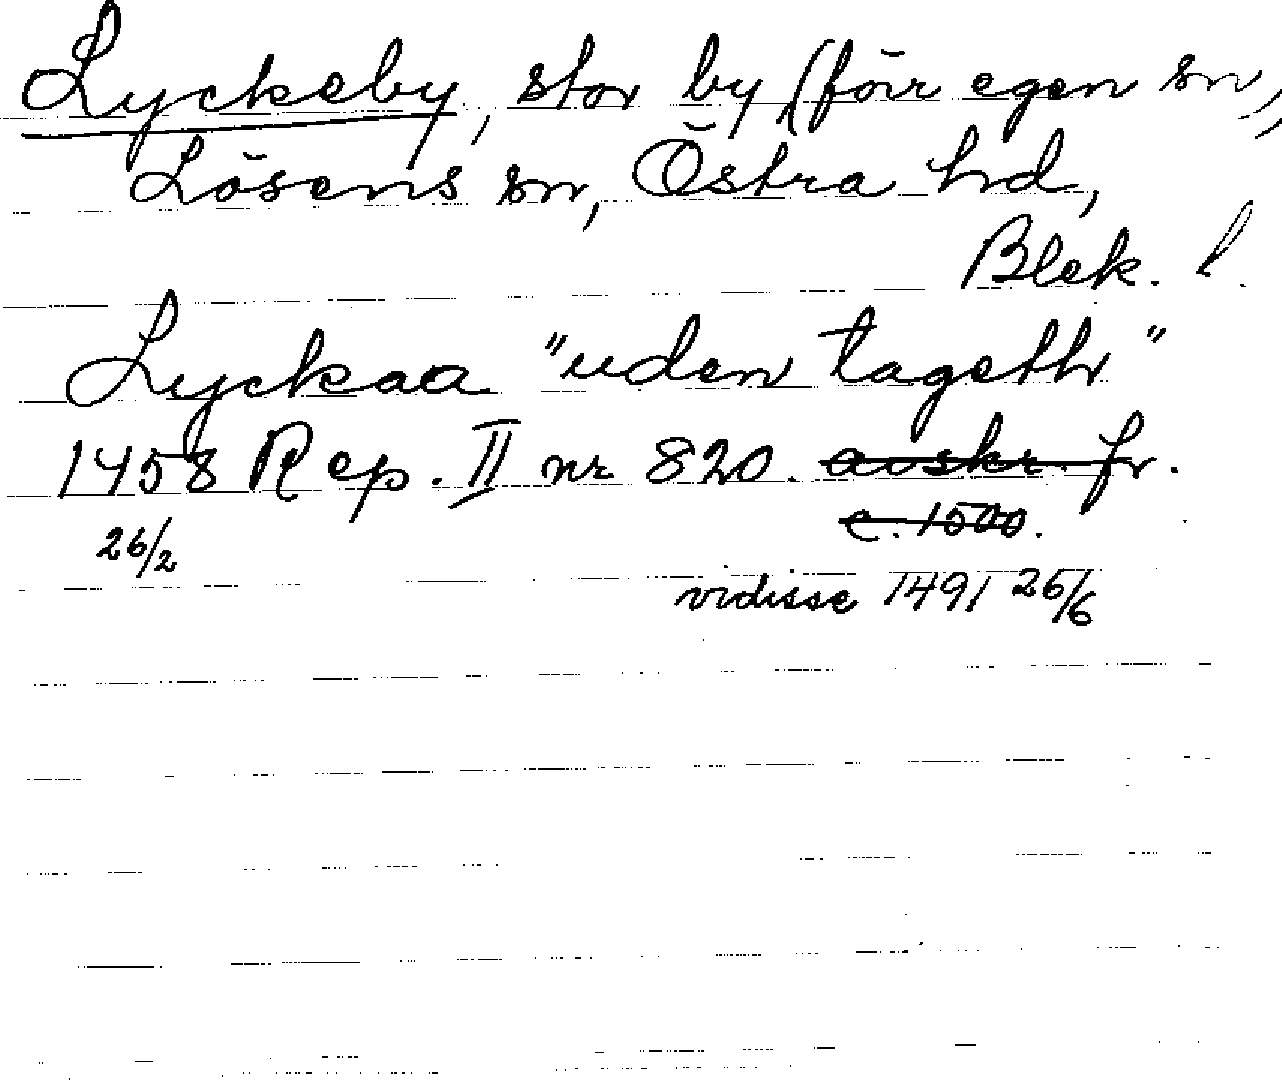 Lyckeby, stor by (förr egen sn),
Lösens sn, Östra hd,
Blek. l.
Lyckaa "uden tageth"
1458 Rep. II nr 820. avskr. fr.
26/2 c. 1500.
vidisse 1491 26/6